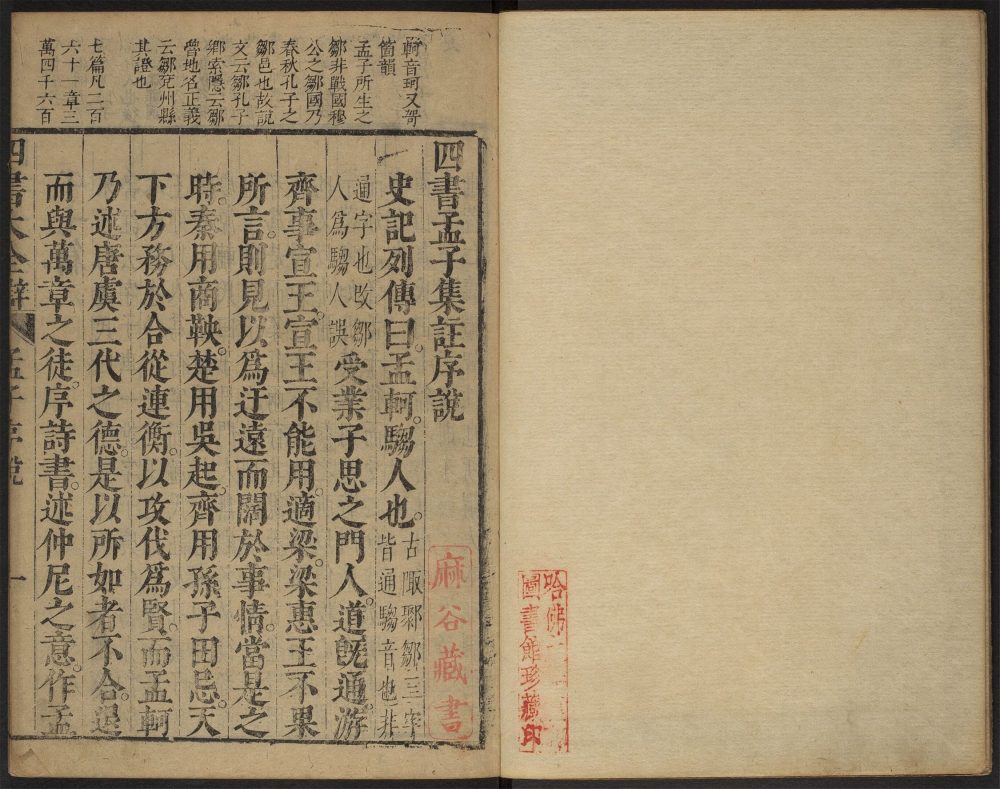 哈佛
圖書館珍藏印
軻音珂又哿
箇韻
孟子所生之
鄒非戰國穆
公之鄒國乃
春秋孔子之
鄒邑也故說
文云鄒孔子
鄉索隱云鄒
魯地名正義
云鄒兗州縣
其證也
七篇凡二百
六十一章三
萬四千六百
四書孟子集註序說
麻谷藏書
史記列傳曰。孟軻。騶人也。古陬鄹鄒三字
皆通騶音也非
通字也改鄒
人爲騶人誤受業子思之門人。道旣通。游
齊事宣王。宣王不能用。適梁。梁惠王不果
所言。則見以爲迂遠而闊於事情。當是之
時。秦用商鞅。楚用吳起。齊用孫子田忌。天
下方務於合從連衡。以攻伐爲賢。而孟軻
乃述唐虞三代之德。是以所如者不合。退
而與萬章之徒。序詩書。述仲尼之意。作孟
四書大全辯
孟子序說
一